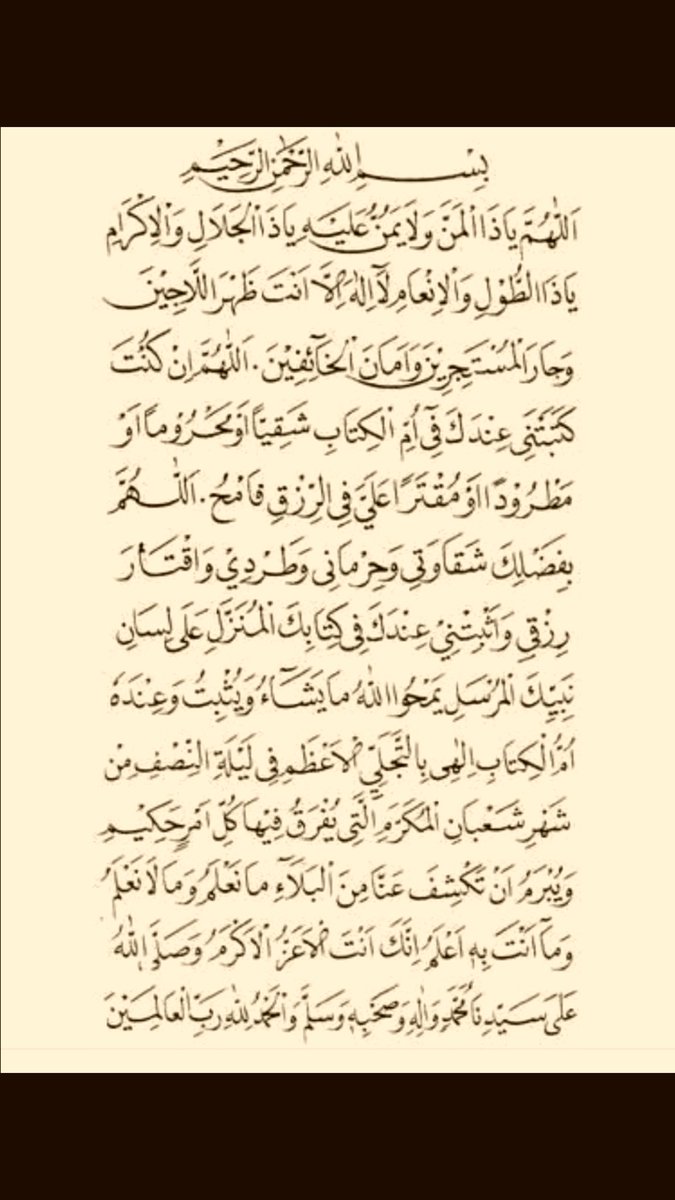 بِسْمِ اللهِ الرَّحْمٰنِ الرَّحِيْمِ
اَللّٰهُمَّ يَاذَا الْمَنِّ وَلَا يَمُنُّ عَلَيْهِ يَاذَا الْجَلَالِ وَالْاِكْرَامِ
يَاذَا الطُّوْلِ وَالْاِنْعَامِ لَآ اِلٰهَ اِلَّا اَنْتَ ظَهْرَ اللَّاجِيْنَ
وَجَارَ الْمُسْتَجِرِيْنَ وَاَمَانَ الْخَآئِفِيْنَ. اَللّٰهُمَّ اِنْ كُنْتَ
كَتَبْتَنِى عِنْدَكَ فِىٓ اُمِّ الْكِتَابِ شَقِيًّا اَوْ مَحْرُوْمًا اَوْ
مَطْرُوْدًا اَوْ مُقْتَرًا عَلَيَّ فِى الرِّزْقِ فَامْحُ. اَللّٰهُمَّ
بِفَضْلِكَ شَقَاوَتِى وَحِرْمَانِى وَطَرْدِيْ وَاقْتَارَ
رِزْقِى وَاَثْبِتْنِيْ عِنْدَكَ فِى كِتَابِكَ الْمُنَزَّلِ عَلَى لِسَانِ
نَبِيِّكَ الْمُرْسَلِ يَمْحُوا اللهُ مَا يَشَآءُ وَيُثْبِتُ وَعِنْدَهٗ
اُمُّ الْكِتَابِ اِلٰهِى بِالتَّجَلِّيِّ الْاَعْظَمِ فِى لَيْلَةِ النِّصْفِ مِنْ
شَهْرِ شَعْبَانِ الْمُكَرَّمِ الَّتِى يُفْرَقُ فِيْهَا كُلُّ اَمْرٍ حَكِيْمٍ
وَيُبْرَمُ اَنْ تَكْشِفَ عَنَّا مِنَ الْبَلَآءِ مَا نَعْلَمُ وَمَا لَا نَعْلَمُ
وَمَآ اَنْتَ بِهٖ اَعْلَمُ اِنَّكَ اَنْتَ الْاَعَزُّ الْاَكْرَمُ وَصَلَّى اللهُ
عَلَى سَيِّدِنَا مُحَمَّدٍ وَاٰلِهٖ وَصَحْبِهٖ وَسَلَّمَ وَالْحَمْدُ لِلّٰهِ رَبِّ الْعَالَمِيْنَ